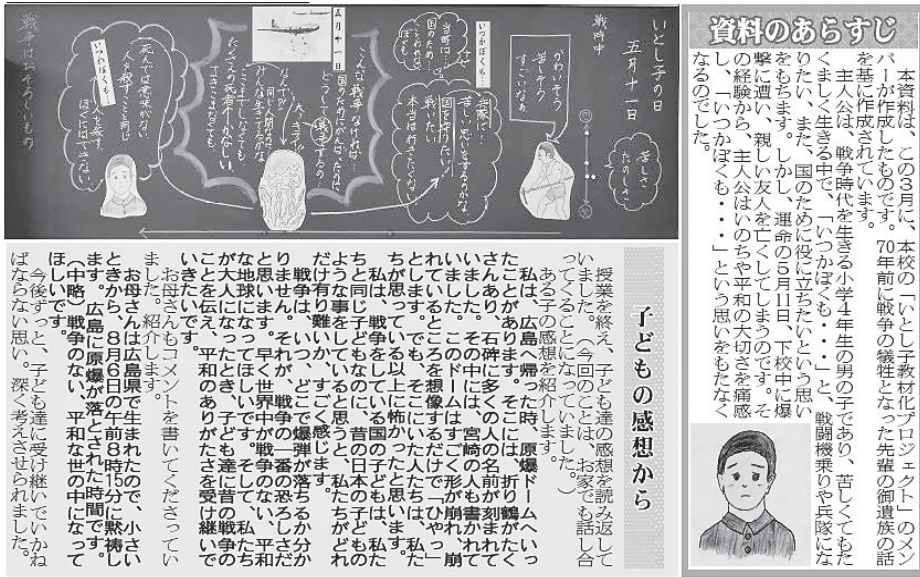 資料のあらすじ
本資料は、この3月に、本校の「いとし子教材化プロジェクト」のメン
バーが作成したものです。70年前に戦争の犠牲となった先輩の御遺族の話
を基に作成されています。
主人公は、戦争時代を生きる小学4年生の男の子であり、苦しくてもた
くましく生きる中で、「いつかぼくも・・・」と、戦闘機乗りや兵隊にな
りたい、また、国のために役に立ちたいという思い
をもちます。しかし、運命の5月11日、下校中に爆
撃に遭い、親しい友人を亡くしてしまうのです。そ
の経験から、主人公はいのちや平和の大切さを痛感
し、「いつかぼくも・・・」という思いをもたなく
なるのでした。
いとし子の日
五月十一日
戦時中
苦しさ
たのしさ
かわいそう
苦しそう
すごいな
いつかぼくも…
兵隊に
苦しい思いをするのかな。
国を守りたい
戦いたい
本当は行きたくない
当時は…
国のため
五月十一日
こんな戦争なければ
国のためでがんばったのに
どうして
大きらい
なんで?
同じ人間なのに
みんな生きてるのに
ここまでしなくても
たくさんの死者が…かなしい
いつかぼくも…
死んでは意味がない
人を殺すことと同じ
ぼくにはできない
戦争はおそろしいもの
子どもの感想から
授業を終え、子ども達の感想を読み返して
みました。（今回のことは、お家でも話し合
ってくることになっていました。）
ある子の感想を紹介します。
私は、広島へ帰った時、原爆ドームへいっ
たことがあります。そこには、折り鶴がたく
さんあり、石碑に多くの人の名前が刻まれて
いました。その中には、宮崎の人も書かれて
いました。このドームはすごく形が崩れ、崩
れているところを想像するだけで「ひやっ」
とします。でも、そこにいた人たちは、私た
ちが思っている以上に怖かったと思います。
私は、戦争をしている国の子どもは、私た
ちと同じ子どもなのに、昔の日本の子どもの
ような事をしていると思うと、私たちがどれ
だけ有り難いか、すごく感じます。
戦争は、いつ、どこで爆弾が落ちるか分か
りません。それが、戦争の一番の恐ろしさだ
と思います。早く世界中が戦争のない、平和
な地球になってほしいです。そして、私たち
が大人になったとき、子ども達に昔の戦争の
ことを伝え、平和のありがたさを受け継いで
いきたいです。
お母さんもコメントを書いてくださってい
ました。紹介します。
お母さんは広島県で生まれたので、小さい
ときから、8月6日の午前8時15分に黙祷し
ます。広島に原爆が落とされた時間です。
（中略）戦争のない、平和な世の中になって
ほしいです。
今後ずっと、子ども達に受け継いでいかね
ばならない思い。深く考えさせられました。